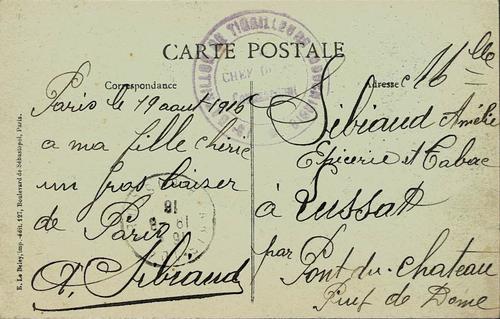 CARTE POSTALE
Correspondance
Adresse
Paris le 19 aout 1916
a ma fille chérie
un gros baiser
de Paris
A. Sibiaud
Mlle
Sibiaud Amélie
Epicerie et Tabac
à Lussat
par Pont-du-chateau
Puy de Dome
E. Le Deley, imp.-édit. 127, Boulevard de Sébastopol, Paris.
TIRAILLEURS
CHEF DE
18
19 - 8
16